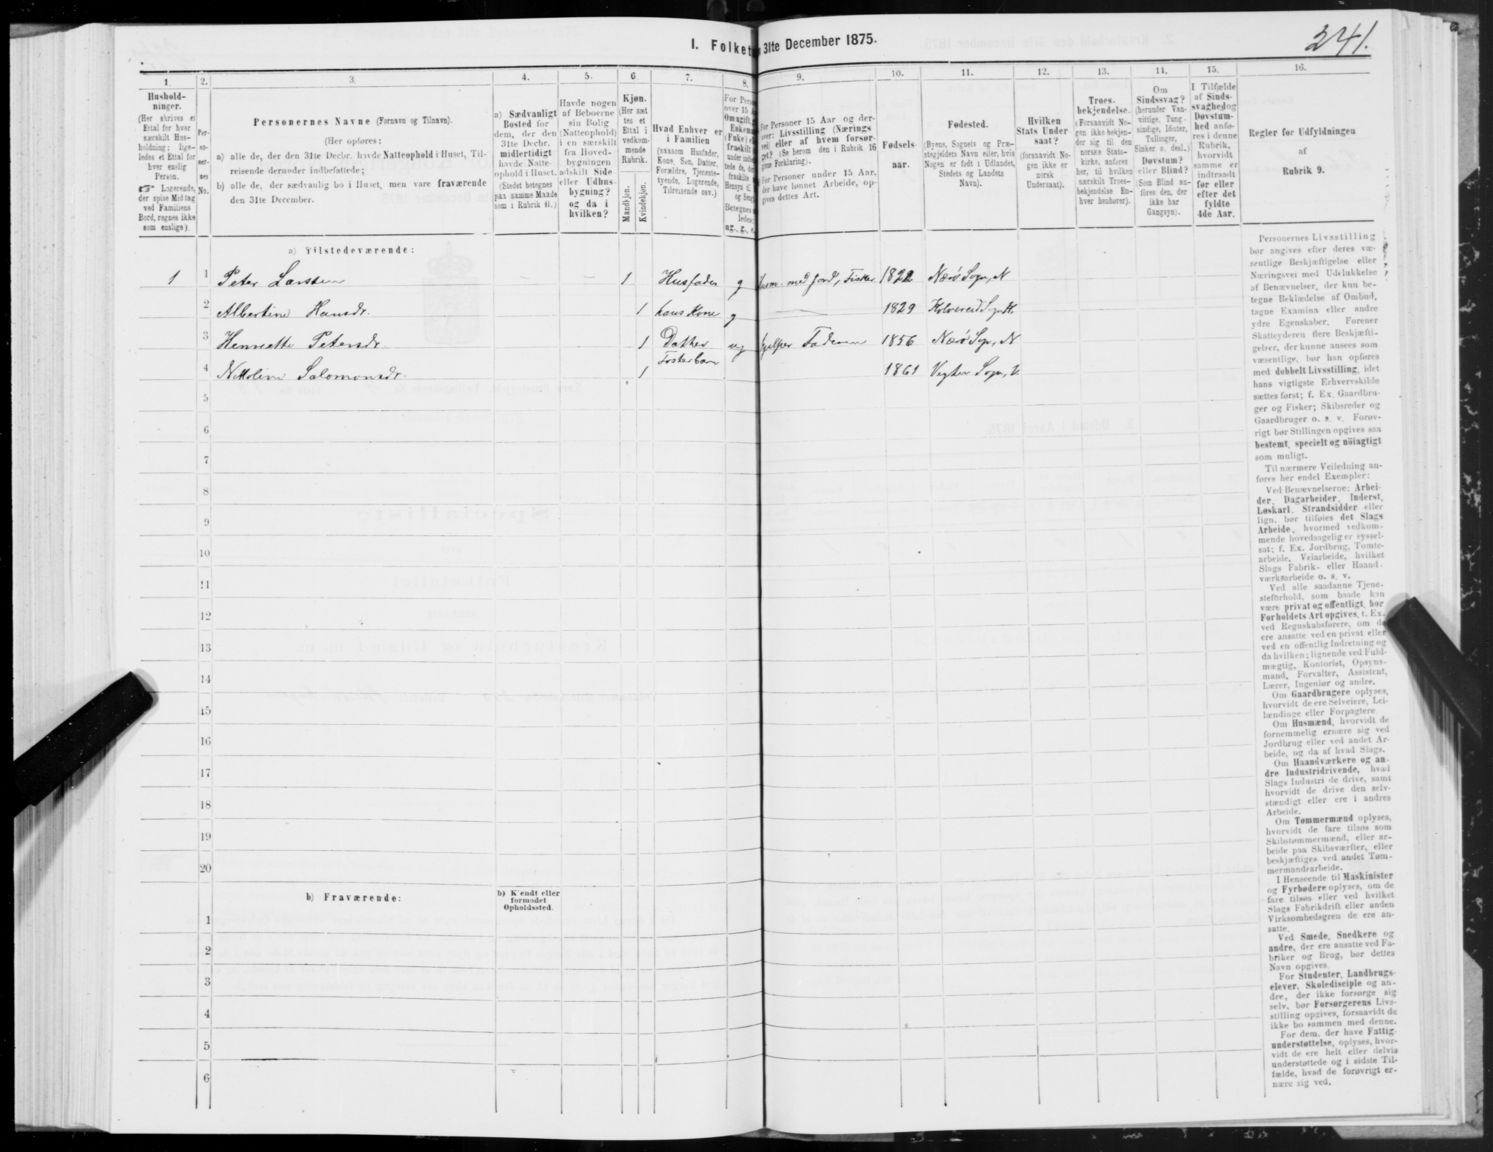 I. Folket 31te December 1875.
241.
1 2. 3. 4. 5. 6 7. 8. 9. 10. 11. 12. 13. 14. 15. 16.
Hushold-
ninger.
(Her skrives et
Ettal for hver
særskilt Hus-
holdning; lige-
ledes et Ettal for
hver enslig
Person.
☞ Logerende,
der spise Middag
ved Familiens
Bord, regnes ikke
som enslige).
Per-
so-
ner-
nes
No.
Personernes Navne (Fornavn og Tilnavn).
(Her opføres:
a) alle de, der den 31te Decbr. havde Natteophold i Huset, Til-
reisende derunder indbefattede;
b) alle de, der sædvanlig bo i Huset, men vare fraværende
den 31te December.
a) Sædvanligt
Bosted for
dem, der den
31te Decbr.
midlertidigt
havde Natte-
ophold i Huset.
(Stedet betegnes
paa samme Maade
som i Rubrik 11.)
Havde nogen
af Beboerne
sin Bolig
(Natteophold)
i en særskilt
fra Hoved-
bygningen
adskilt Side-
eller Udhus-
bygning?
og da i
hvilken?
Kjøn.
(Her sæt-
tes et
Ettal i
vedkom-
mende
Rubrik.
Mandkjøn.
Kvindekjøn.
Hvad Enhver er
i Familien
(saasom Husfader,
Kone, Søn, Datter,
Forældre, Tjeneste-
tyende, Logerende,
Tilreisende osv.)
For Personer 15 Aar og der-
over: Livsstilling (Nærings-
vei eller af hvem forsør-
get? (Se herom den i Rubrik 16
givne Forklaring).
For Personer under 15 Aar,
der have lønnet Arbeide, op-
gives dettes Art.
Fødsels-
aar.
Fødested.
(Byens, Sognets og Præ-
stegjeldets Navn eller, hvis
Nogen er født i Udlandet,
Stedets og Landets
Navn).
Hvilken
Stats Under
saat?
(foranavidt No-
gen ikke er
norsk
Undersaat).
Troes-
bekjendelse.
(Forsaavidt No-
gen ikke bekjen-
der sig til den
norske Stats-
kirke, anføres
her, til hvilken
særskilt Troes-
bekjendelse En-
hver henhører).
Om
Sindssvag?
(herunder Van-
vittige, Tung-
sindige, Idioter,
Tullinger,
Sinker o. desl.)
Døvstum?
eller Blind?
(Som Blind an-
føres den, der
ikke har
Gangsyn).
I Tilfælde
af Sinds-
svaghedog
Døvstum-
hed anfø-
res i denne
Rubrik,
hvorvidt
samme er
indtraadt
før eller
efter det
fyldte
4de Aar.
Regler for Udfyldningen
af
Rubrik 9.
a) Tilstedeværende:
1 1 Peter Larssen 1 Husfader g med Jord, Fisker 1822 Nærö Sogn, N
2 Albertine Hansdr. 1 hans Kone g 1829 Kolvereid Sogn
3 Henriette Petersdr. 1 Datter ug hjelper Faderen 1856 Nærö Sogn, N
4 Nikoline Salomonsdr. 1 Fosterbarn 1861 Vigten Sogn, V.
5
6
7
8
9
10
11
12
13
14
15
16
17
18
19
20
b) Fraværende:
b) Kjendt eller
formodet
Opholdssted.
1
2
3
4
5
6
Personernes Livsstilling
bør angives efter deres væ-
sentlige Beskjæftigelse eller
Næringsvei med Udelukkelse
af Benævnelser, der kun be-
tegne Beklædelse af Ombud,
tagne Examina eller andre
ydre Egenskaber. Forener
Skatteyderen flere Beskjæfti-
gelser, der kunne ansees som
væsentlige, bør han opføres
med dobbelt Livsstilling, idet
hans vigtigste Erhvervskilde
sættes først; f. Ex. Gaardbru-
ger og Fisker; Skibsreder og
Gaardbruger o. s. v. Forøv-
rigt bør Stillingen opgives saa
bestemt, specielt og nöiagtigt
som muligt.
Til nærmere Veiledning an-
føres her endel Exempler:
Ved Benævnelserne: Arbei-
der, Dagarbeider, Inderst,
Løskarl, Strandsidder eller
lign. bør tilføies det Slags
Arbeide, hvormed vedkom-
mende hovedsagelig er syssel-
sat; f. Ex. Jordbrug, Tomte-
arbeide, Veiarbeide, hvilket
Slags Fabrik- eller Haand-
værksarbeide o. s. v.
Ved alle saadanne Tjene-
steforhold, som baade kan
være privat og offentligt, bør
Forholdets Art opgives, f. Ex.
ved Regnskabsførere, om de
ere ansatte ved en privat eller
ved en offentlig Indretning og
da hvilken; lignende ved Fuld-
mægtig, Kontorist, Opsyns-
mand, Forvalter, Assistent,
Lærer, Ingeniør og andre.
Om Gaardbrugere oplyses,
hvorvidt de ere Selveiere, Lei-
lændinge eller Forpagtere.
Om Husmænd, hvorvidt de
fornemmelig ernære sig ved
Jordbrug eller ved andet Ar-
beide, og da af hvad Slags.
Om Haandværkere og an-
dre Industridrivende, hvad
Slags Industri de drive, samt
hvorvidt de drive den selv-
stændigt eller ere i andres
Arbeide.
Om Tømmermænd oplyses,
hvorvidt de fare tilsøs som
Skibstømmermænd, eller ar-
beide paa Skibsværfter, eller
beskjæftiges ved andet Tøm-
mermandsarbeide.
I Henseende til Maskinister
og Fyrbødere oplyses, om de
fare tilsøs eller ved hvilket
Slags Fabrikdrift eller anden
Virksomhedsgren de ere an-
satte.
Ved Smede, Snedkere og
andre, der ere ansatte ved Fa-
briker og Brug, bør dettes
Navn opgives.
For Studenter, Landbrugs-
elever, Skoledisciple og an-
dre, der ikke forsørge sig
selv, bør Forsørgerens Livs-
stilling opgives, forsaavidt de
ikke bo sammen med denne.
For dem, der have Fattig-
understøttelse, oplyses, hvor-
vidt de ere helt eller delvis
understøttede og i sidste Til-
fælde, hvad de forøvrigt er-
nære sig ved.